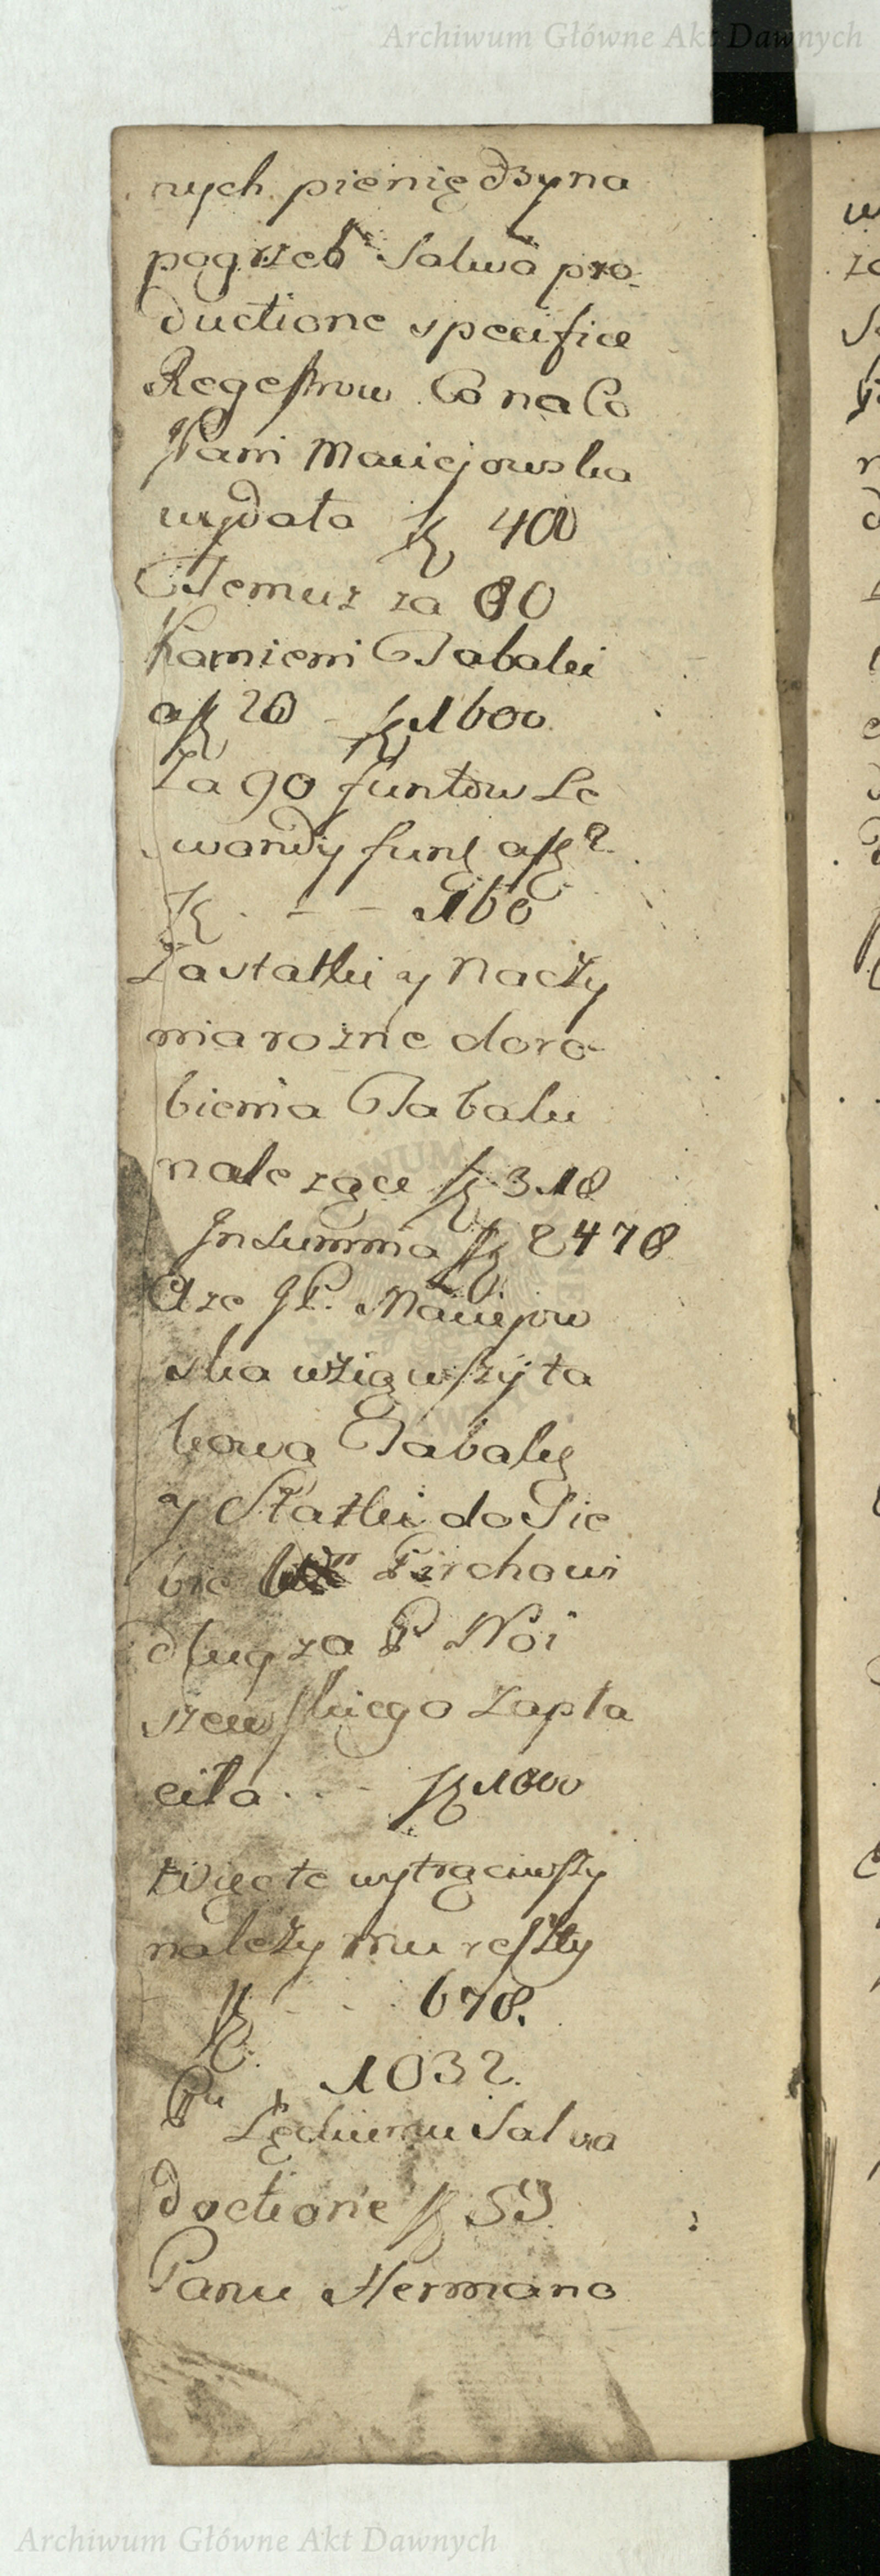 Archiwum Główne Akt Dawnych
nych pieniędzy na
pogrzeb Salwa pro-
ductione specifice
Regestrow Co na Co
Pani Maciejowska
wydała fl 400
Temuz za 80
Kamieni Tabaki
a fl 20 - fl 1600
Za 90 funtow Le
wandy funt a fl 2
fl. - - 160
Za statki y Naczy
nia rozne do ro-
bienia Tabaki
nalezące fl 318
In Summa fl 2478
A ze JP. Maciejow
ska wziąwszy ta
kową Tabakę
y Statki do Sie
bie Pirchowi
dług za P Woi
szewskiego zapła
ciła . . - fl 1800
więc te wytrąciwszy
należy mu reszty
fl - . 678.
1032.
Pu Lęckiemu Salva
doctione fl 53
Panu Hermano
Archiwum Główne Akt Dawnych